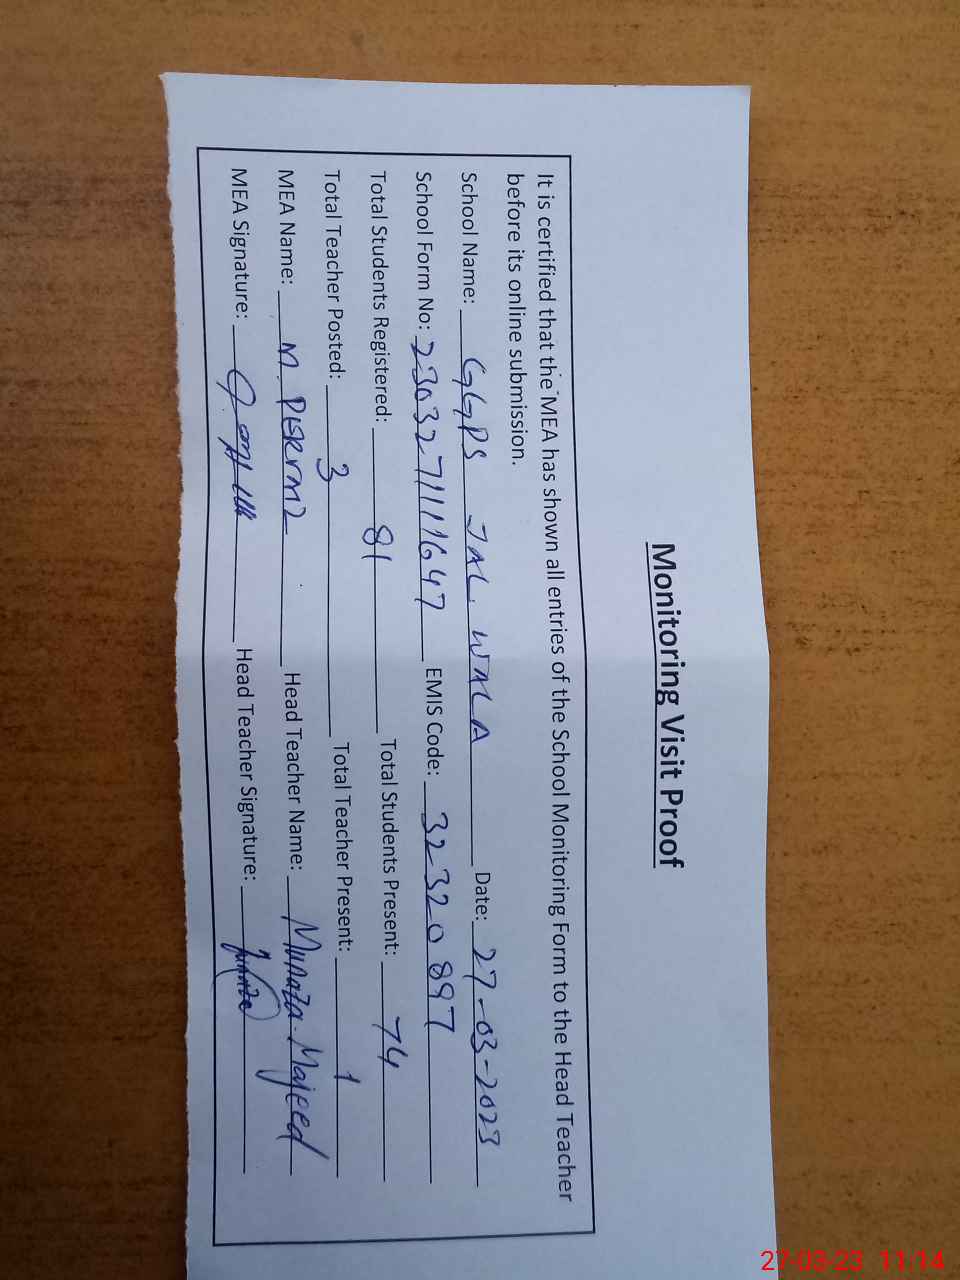 Monitoring Visit Proof
It is certified that the MEA has shown all entries of the School Monitoring Form to the Head Teacher
before its online submission.
School Name: GGPS JAL WALA Date: 27-03-2023
School Form No: 230327111647 EMIS Code: 32320897
Total Students Registered: 81 Total Students Present: 74
Total Teacher Posted: 3 Total Teacher Present: 1
MEA Name: M. Head Teacher Name: Munaza Majeed
MEA Signature: Head Teacher Signature:
27-03-23 11:14